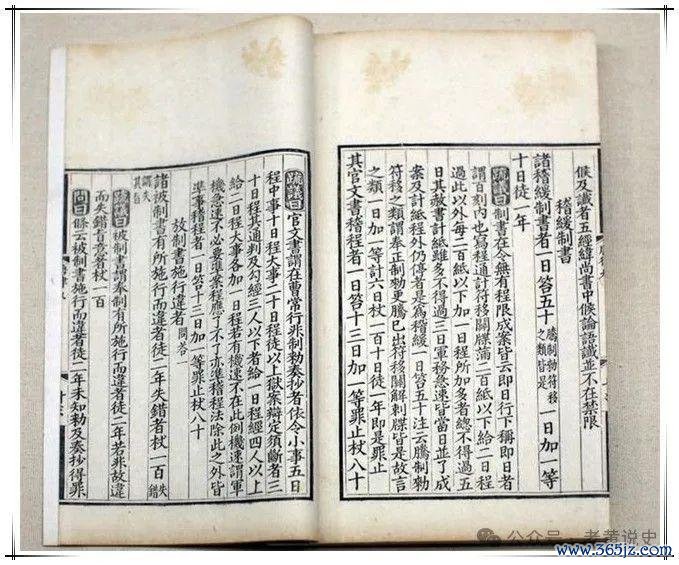 候及讖者五經緯尚書中候論語讖並不在禁限
稽緩制書
諸稽緩制書者一日笞五十謄制勅符移之類皆是一日加一等
十日徒一年
疏議曰制書在令無有程限成案皆云即日行下稱即日者
謂百刻內也寫程通計符移關牒滿二百紙以下給二日程
過此以外每二百紙以下加一日程所加多者總不得過五
日其赦書計紙雖多不得過三日軍務急速皆當日並了成
案及計紙程外仍停者是爲稽緩一日笞五十注云謄制勅
符移之類謂奉正制勅更謄已出符移關解刺牒皆是故言
之類一日加一等計六日杖一百十日徒一年即是罪止
其官文書稽程者一日笞十三日加一等罪止杖八十
疏議曰官文書謂在曹常行非制勅奏抄者依令小事五日
程中事十日程大事二十日程徒以上獄案辯定須斷者三
十日程其通判及勾經三人以下者給一日程經四人以上
給二日程大事各加一日程若有機速不在此例機速謂軍
機急速不必要準案程應了不了亦準稽程法除此之外皆
準事稽程者一日笞十三日加一等罪止杖八十
被制書施行違者問荅一
諸被制書有所施行而違者徒二年失錯者杖一百失錯
謂失其旨
疏議曰被制書謂奉制有所施行而違者徒二年若非故違
而失錯旨意者杖一百
問曰條云被制書施行而違者徒二年未知勅及奏抄得罪
公众号·老姜说史
www.365jz.com